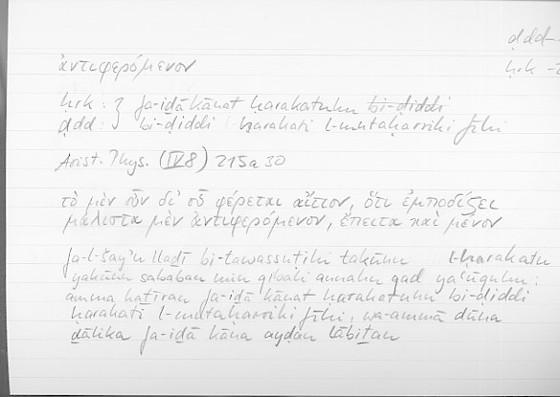 ḍdd-
ἀντιφερόμενον
ḥrk -
ḥrk : } fa-iḏā kānat ḥarakatuhu bi-ḍiddi
ḍdd : } bi-ḍiddi l-ḥarakati l-mutaḥarriki fīhi
Arist. Phys. (IV 8) 215a30
τὸ μὲν οὖν δι' οὗ φέρεται αἴτιον, ὅτι ἐμποδίζει
μάλιστα μὲν ἀντιφερόμενον, ἔπειτα καὶ μένον
fa-l-šayʾu llaḏī bi-tawassuṭihi takūnu l-ḥarakatu
yakūnu sababan min qibali annahu qad yaʿūquhu:
ammā kaṯīran fa-iḏā kānat ḥarakatuhu bi-ḍiddi
ḥarakati l-mutaḥarriki fīhi, wa-ammā dūna
ḏālika fa-iḏā kāna ayḍan lābiṯan